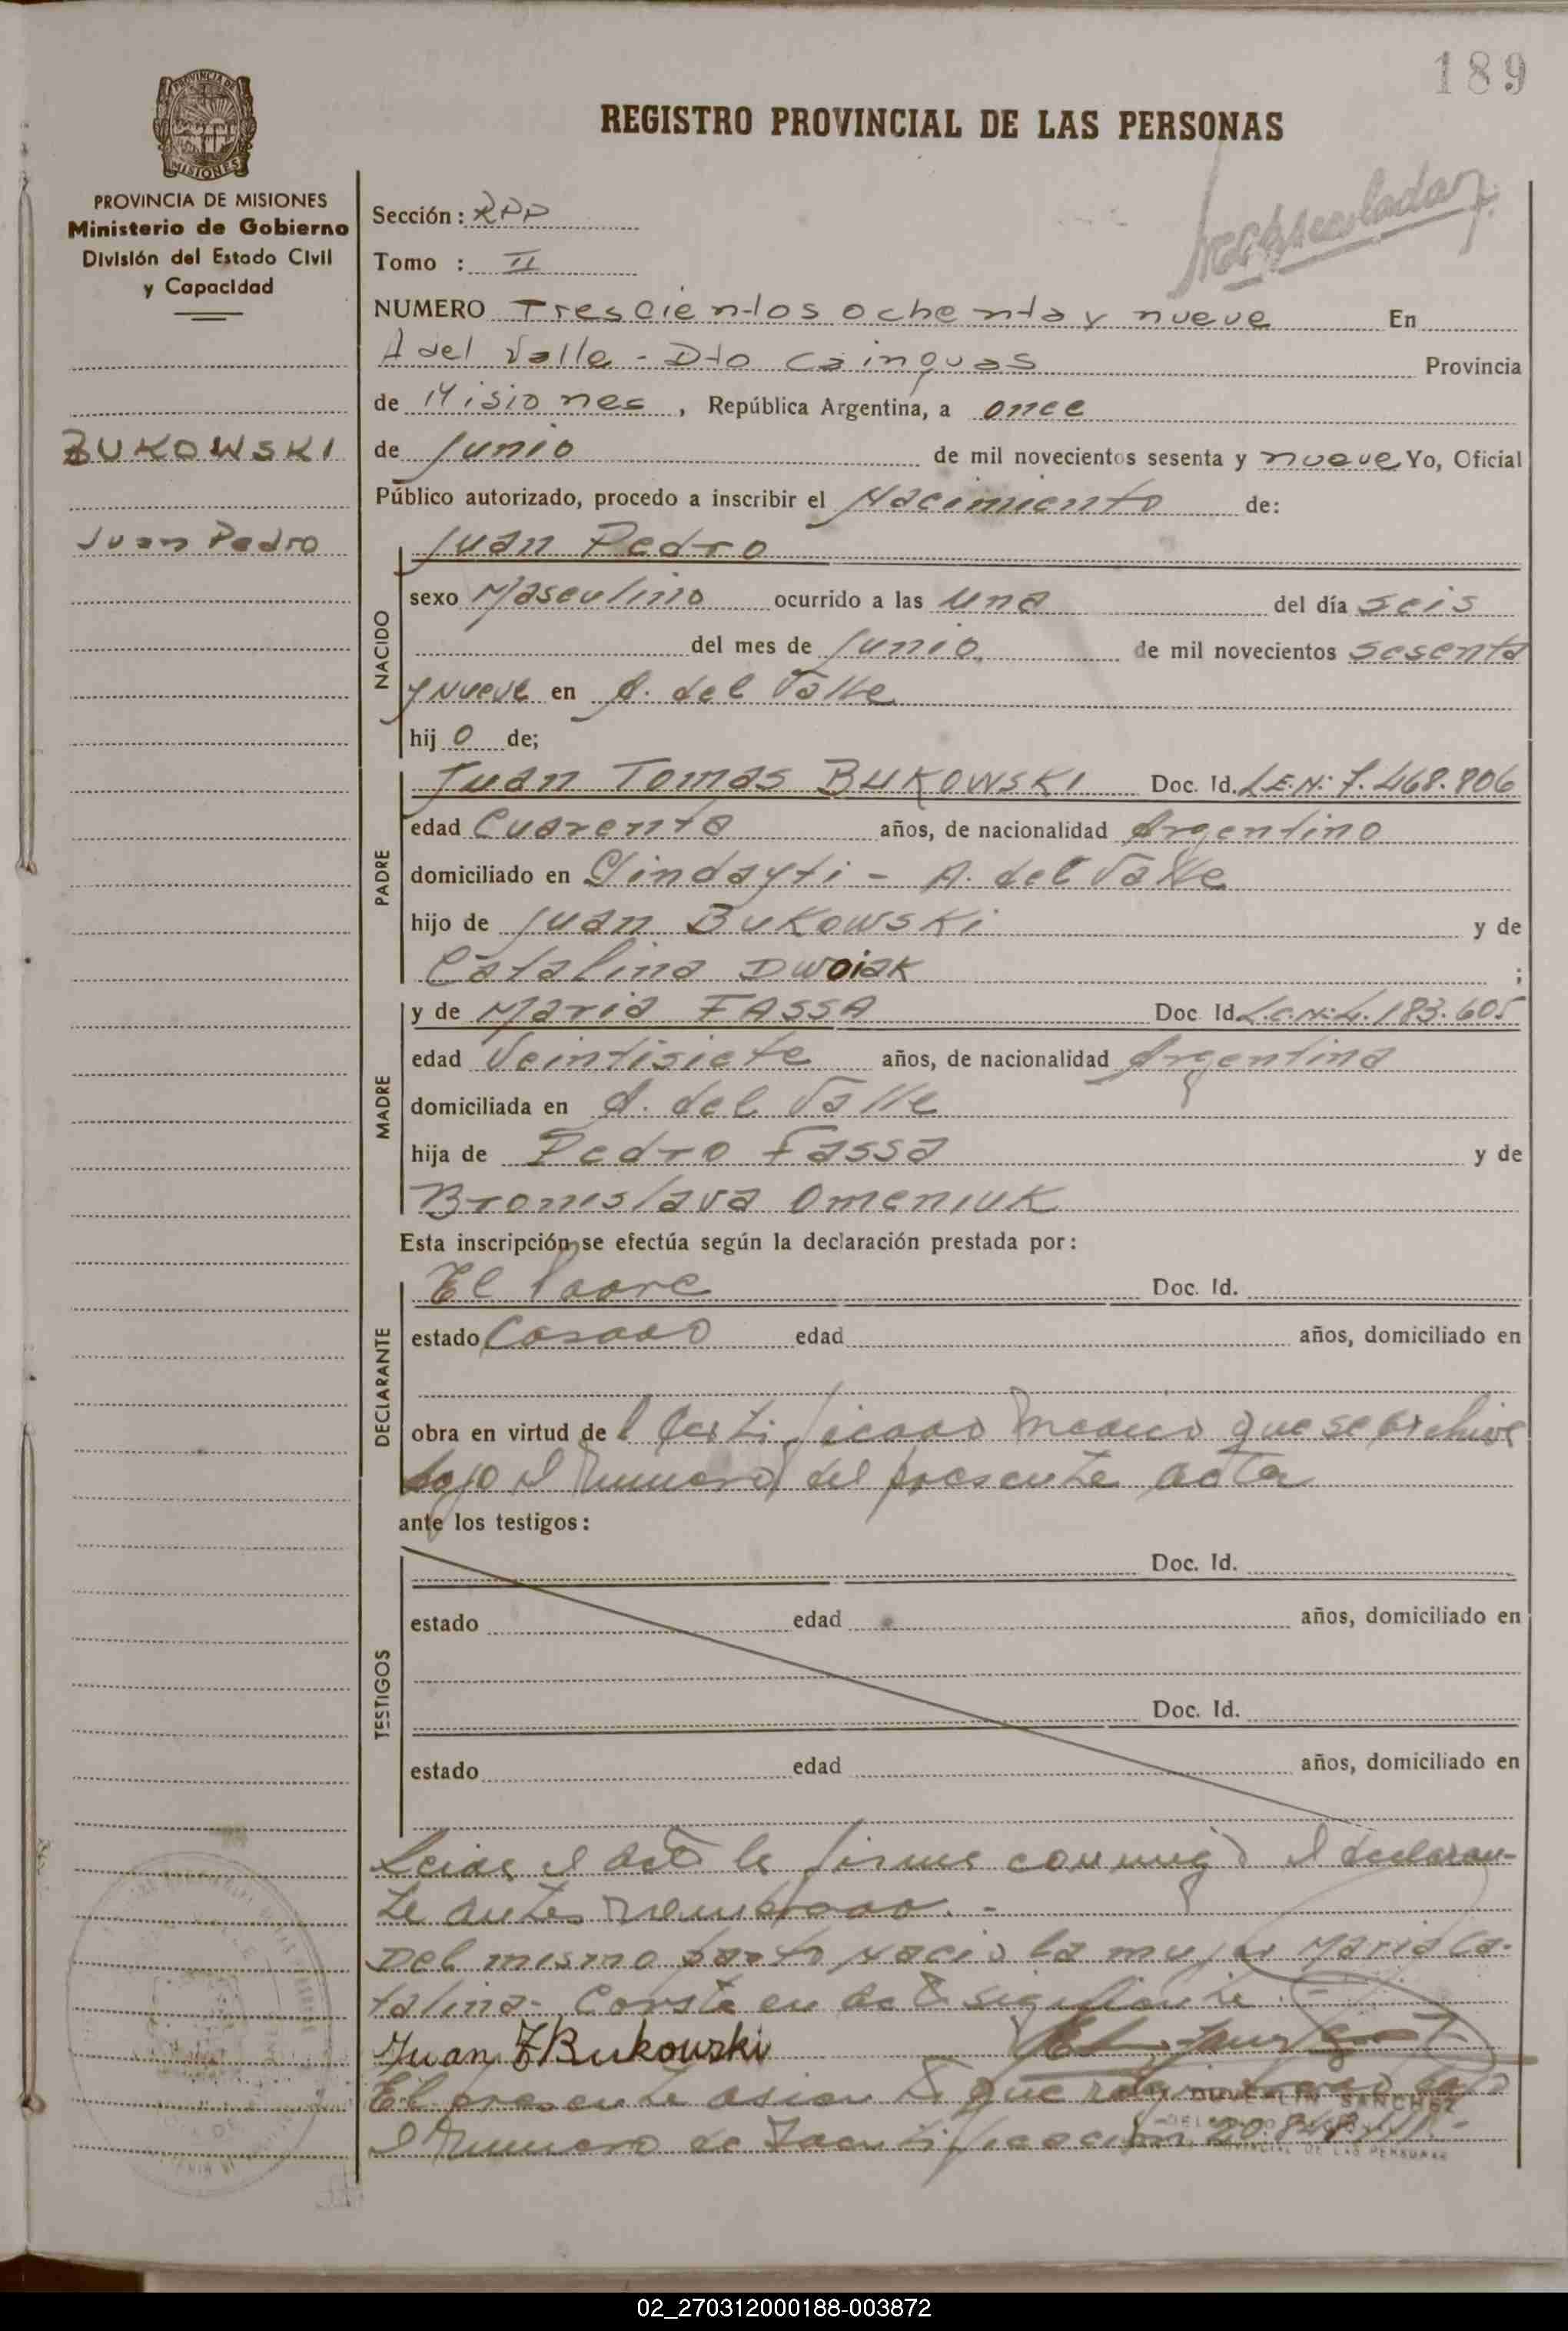 189
PROVINCIA DE
MISIONES
REGISTRO PROVINCIAL DE LAS PERSONAS
PROVINCIA DE MISIONES
Ministerio de Gobierno
División del Estado Civil
y Capacidad
BUKOWSKI
Juan Pedro
Sección: RPP
Tomo : II
NUMERO Trescientos ochenta y nueve En
A del Valle - Dto Cainguas Provincia
de Misiones, República Argentina, a once
de Junio de mil novecientos sesenta y nueve Yo, Oficial
Público autorizado, procedo a inscribir el Nacimiento de:
NACIDO
Juan Pedro
sexo Masculino ocurrido a las una del día seis
del mes de Junio de mil novecientos sesenta
y nueve en A. del Valle
hij o de;
PADRE
Juan Tomas BUKOWSKI Doc. Id. L.E.N: 7.468.806
edad Cuarenta años, de nacionalidad Argentino
domiciliado en - A. del Valle
hijo de Juan BUKOWSKi y de
Catalina DWOiAK ;
MADRE
y de Maria FASSA Doc Id. L.C.N: 4.183.605
edad Veintisiete años, de nacionalidad Argentina
domiciliada en A. del Valle
hija de Pedro Fassa y de
Bronislava OMENIUK
Esta inscripción se efectúa según la declaración prestada por:
DECLARANTE
El Padre Doc. Id.
estado Casado edad años, domiciliado en
obra en virtud de l Certificado Medico que se archiva
bajo el Numero del presente acta
ante los testigos:
TESTIGOS
Doc. Id.
estado edad años, domiciliado en
Doc. Id.
estado edad años, domiciliado en
Leida el acta la firma conmigo el declaran-
te antes nombrado. -
Del mismo parto nacio la mujer Maria Ca-
talina- Consta en acta siguiente. -
Juan T Bukowski
El presente asiento que registrado bajo
SANCHEZ
el Numero de Identificacion 20.848.
DE LAS PERSONAS
02_270312000188-003872